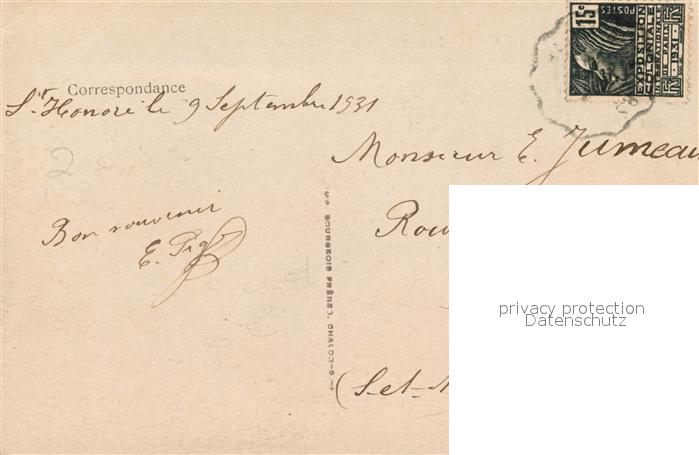 15c
POSTES
EXPOSITION
COLONIALE
INTERNATIONALE
DE PARIS
1931
RF
Correspondance
St Honoré le 9 Septembre 1931
2
Monsieur E. Jumeau
Bon souvenir
E.
BOURGEOIS FRÈRES, CHALON-S-
(S-et-
privacy protection
Datenschutz